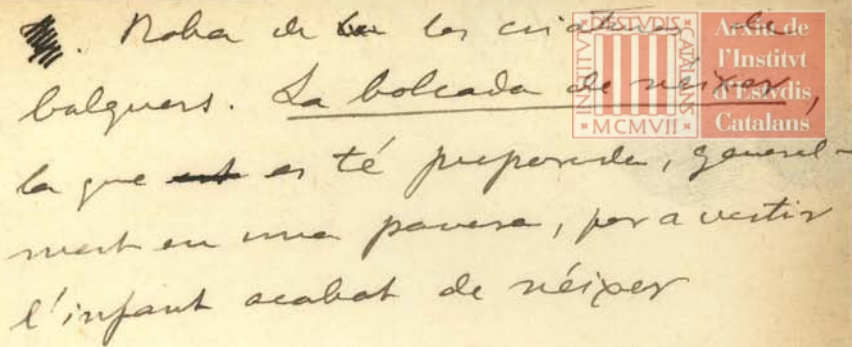 . Roba de les criatures de
bolquers. La bolcada de néixer,
la que es té preparada, general-
ment en una panera, per a vestir
l'infant acabat de néixer
INSTITVT D'ESTVDIS CATALANS
MCMVII
Arxiu de
l'Institvt
d'Estvdis
Catalans